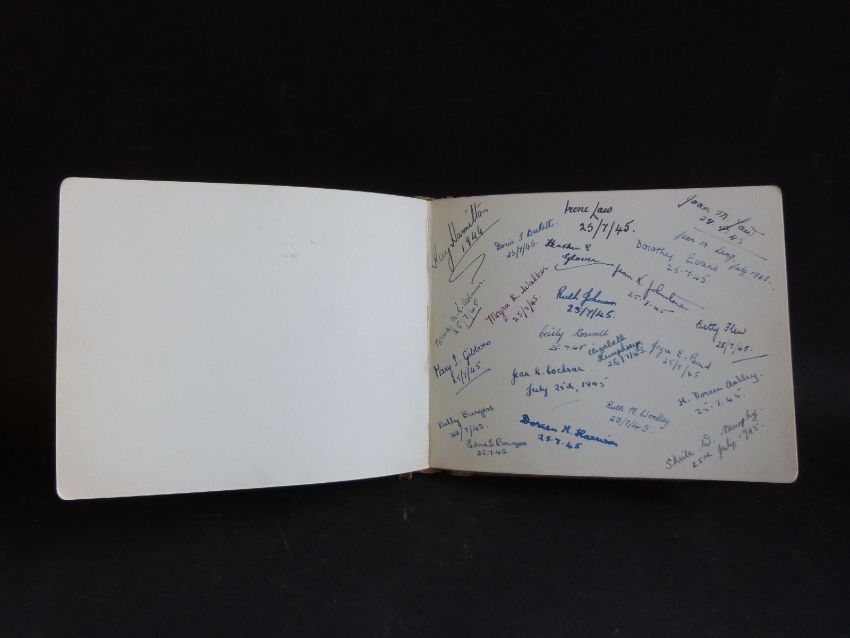 Kay Hamilton
1944
Doris J Beckett
23/7/45.
Irene Law
23/7/45.
Joan M Law
Heather E
Glover
Dorothy Evans
25.7.45
July 1945.
Moyra R. Walker
23/7/45.
Jean K. Johnstone
25.7.45
25.7.45
Ruth Johnson
23/7/45.
Betty Flew
25/7/45.
Mary J. Gibbons
25/7/45
Cecily Boswell
25.7.45
Elizabeth
Humphreys
25/7/45.
Joyce E.
25/7/45
Jean K. Cochran
July 25th, 1945
H. Doreen
25.7.45.
Betty Burgess
23/7/45.
Edna E. Bowyer
25.7.45.
Doreen H. Harrison
25.7.45
Ruth M. Woolley
23/7/45.
Sheila D. Murphy.
25th July, 1945.